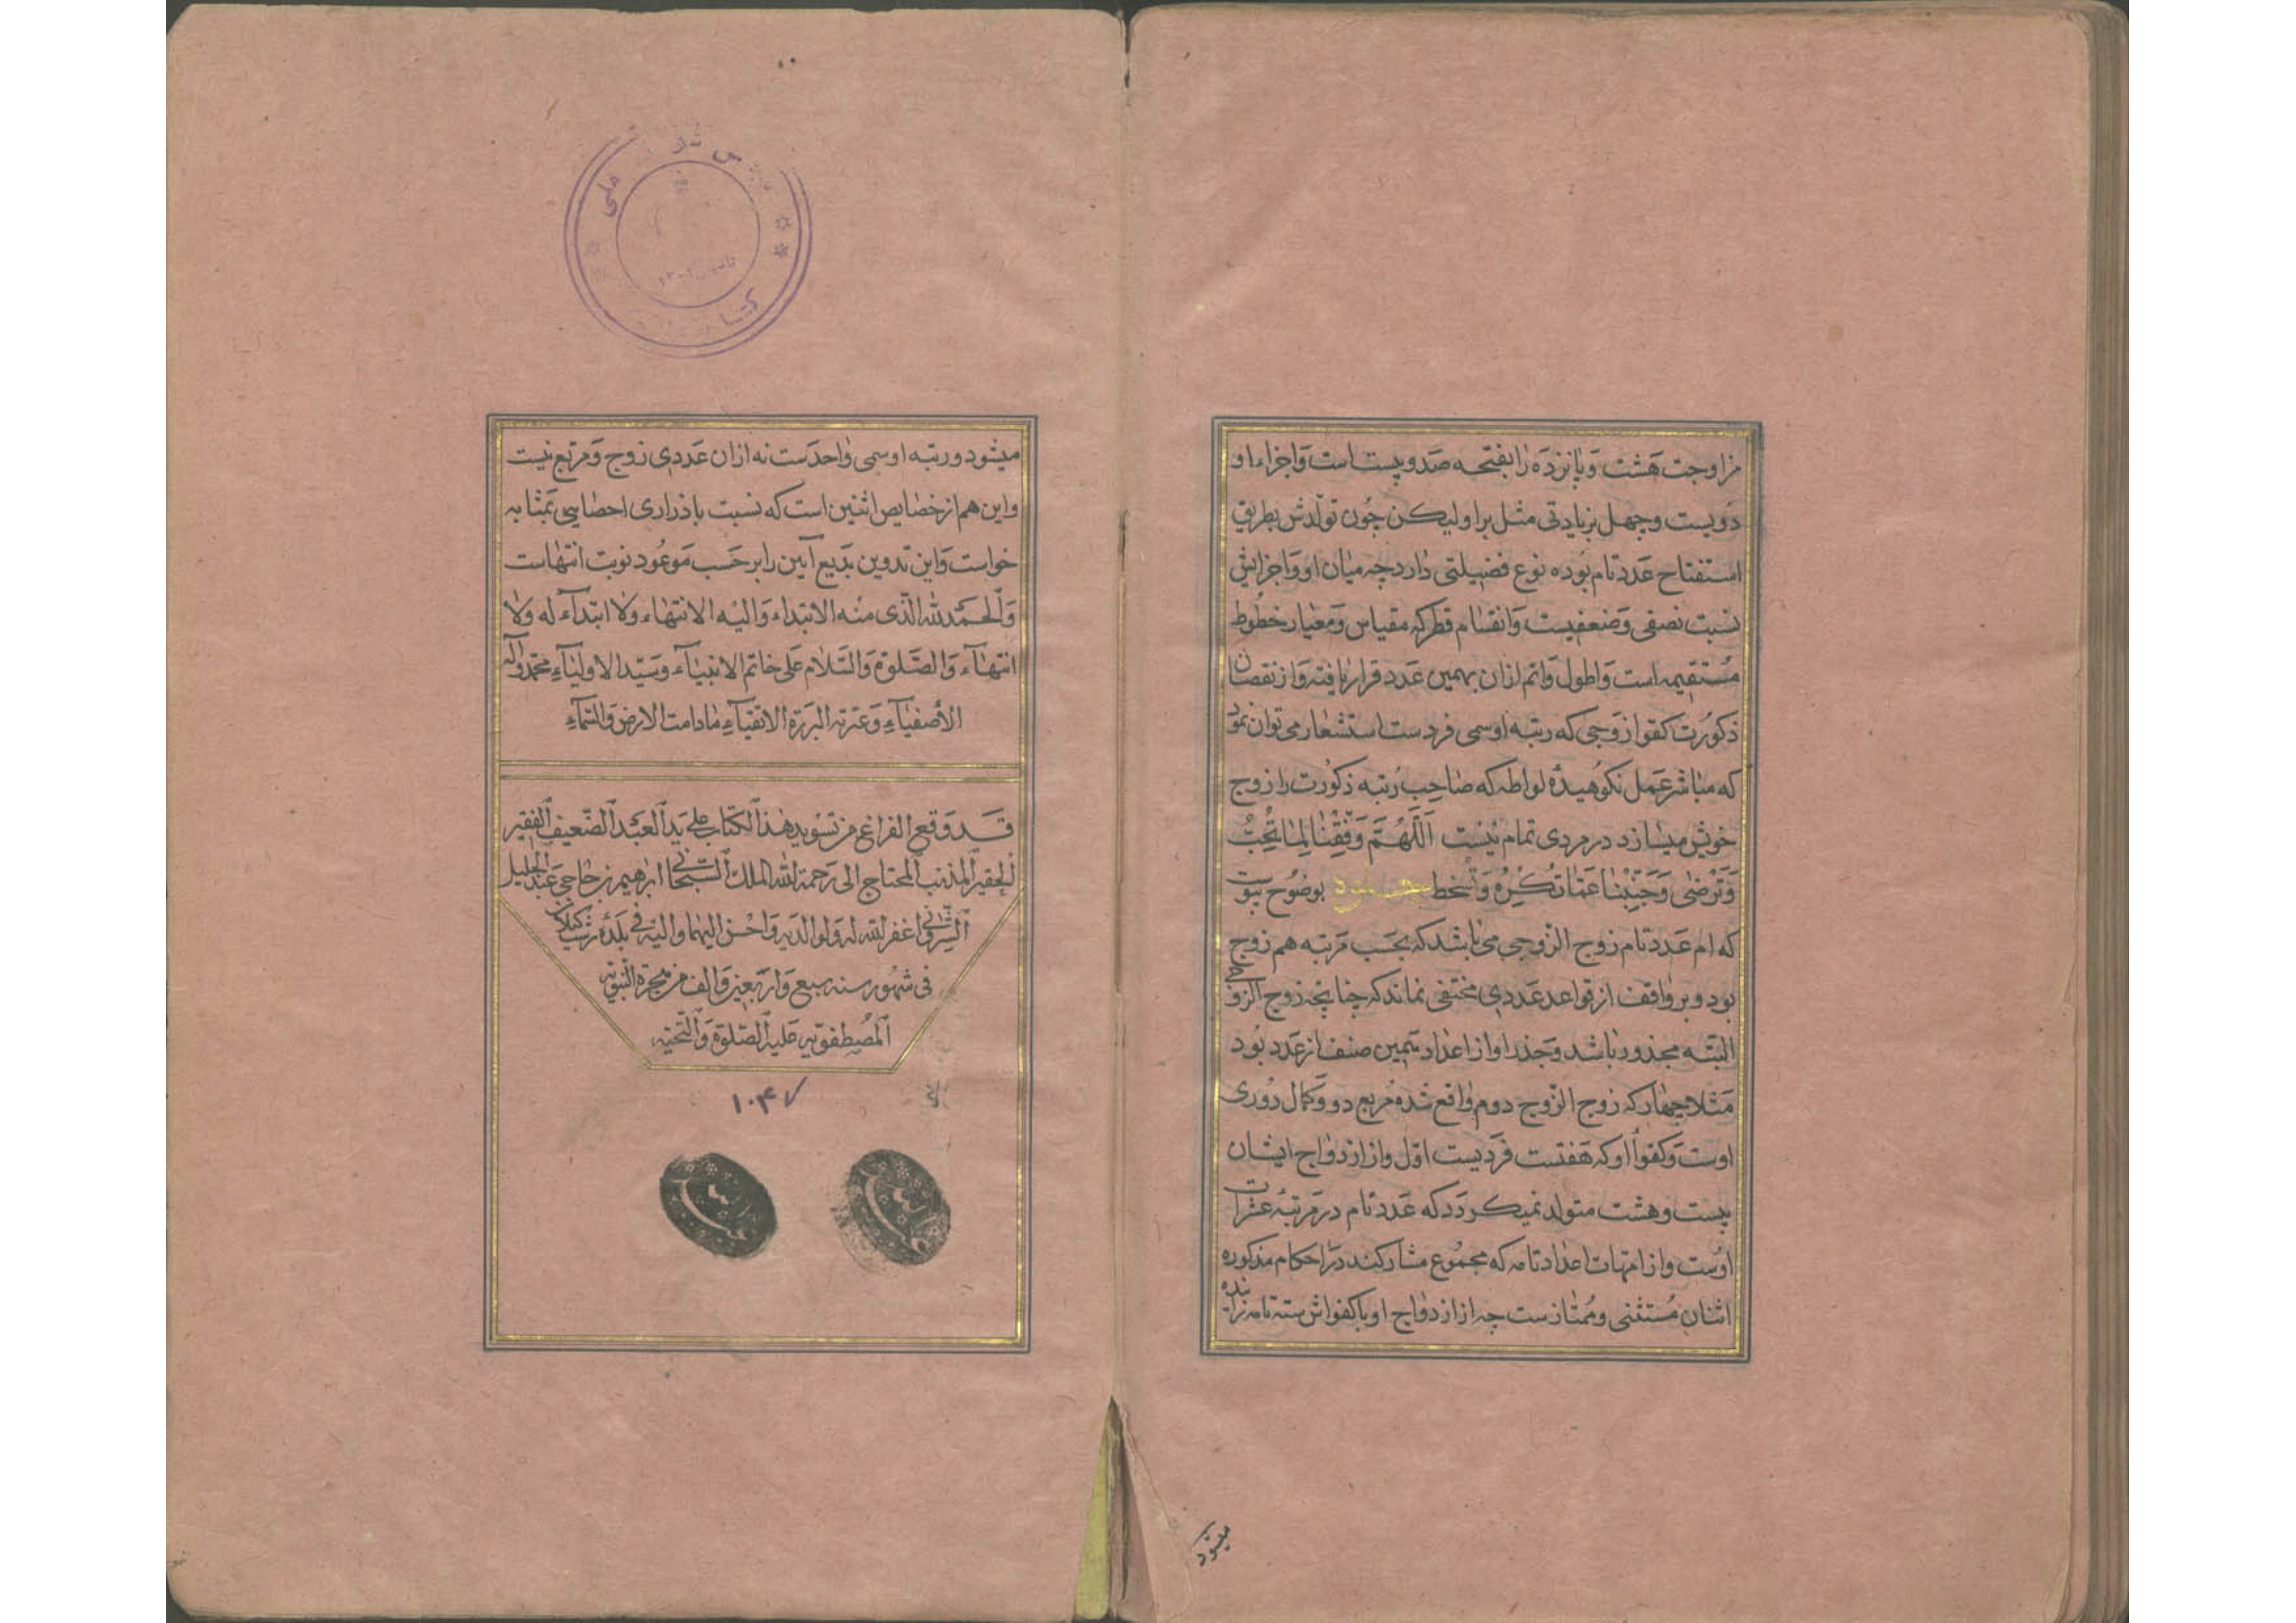 مزاوجت هشت و پانزده را نفتحه صد و بیست است و اجزاء او
دویست و چهل بزیادتی مثل برا و لیکن چون تولدش بطریق
استفتاح عدد تام بوده نوع فضیلتی دارد چه میان او و اجزایش
نسبت نصفی و ضعفیست و انقسام قطر که مقیاس و معیار خطوط
مستقیمه است و اطول و اتم ازان بهمین عدد قرار یافته و از نقصان
ذکورت کفو از وجی که رتبه او سمی فردست استشعار می توان نمود
که مباشر عمل نکوهیدهٔ لواطه که صاحب رتبه ذکورت را زوج
خویش میسازد در مردی تمام نیست اَللّهُمَّ وَفِّقْنا لِما تُحِبُّ
وَتَرْضی وَجَنِّبْنا عَمّا تَکْرَهُ وَتَسْخط بوضوح پیوست
که ام عدد تام زوج الزوجی می باشد که بحسب مرتبه هم زوج
بود و بر واقف از قواعد عددی مختفی نماند که چنانچه زوج الزوجی
البته مجذور باشد و جذر او از اعداد همین صنف از عدد بود
مثلا چهار که زوج الزوج دوم واقع شده مربع دو و کمال دوری
اوست و کفوأ او که هفتست فردیست اول و از ازدواج ایشان
بیست و هشت متولد نمیکردد که عدد تام در مرتبهٔ عشرات
اوست و از امهات اعداد تامه که مجموع مشارکند در احکام مذکوره
اثنان مستثنی و ممتازست چه از ازدواج او با کفواش سته تامه زاینده
میشود
میشود و رتبه او سمی واحدست نه ازان عددی زوج و مربع نیست
و این هم از خصایص اثنین است که نسبت با ذراری احصایی بمثابه
خواست و این تدوین بدیع آیین را بر حسب موعود نوبت انتهاست
وَالحمد لله الّذی منه الابتداء والیه الانتهاء ولا ابتدآء له ولا
انتهآء وَالصّلوة والسّلام علی خاتم الانبیآء وسیّد الاولیآء محمّد وآله
الأصفیآءِ وعترته البررة الاتقیآءِ مادامت الارض والسّمآءِ
قد وقع الفراغ من تسوید هذا الکتاب علی ید العبد الضّعیف الفقیر
الحقیر المذنب المحتاج الی رحمة الله الملک السّبحانی ابراهیم بن حاجی عبد الجلیل
الشّروانی اغفر الله له ولوالدیه واحسن الیهما والیه فی بلدهٔ رشت کیلان
فی شهور سنه سبع واربعین والف من هجرة النّبویّه
المصطفویّه علیه الصّلوة والتّحیّه
۱۰۴۷